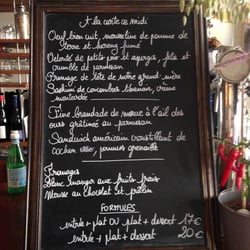 A la carte ce midi
Oeuf bien cuit, mousseline de pomme de
terre et hareng fumé
Velouté de petits pois et asperges, feta et
crumble de parmesan
Fromage de tête de notre grand-mère
de concombres libanais, crème
moutardée
Fine brandade de morue à l'ail des
ours gratinée au parmesan
Sandwich américain croustillant de
cochon, pommes grenaille
Fromages
Blanc manger aux fruits frais
Mousse au chocolat et
FORMULES
entrée + plat OU plat + dessert 17€
entrée + plat + dessert 20€